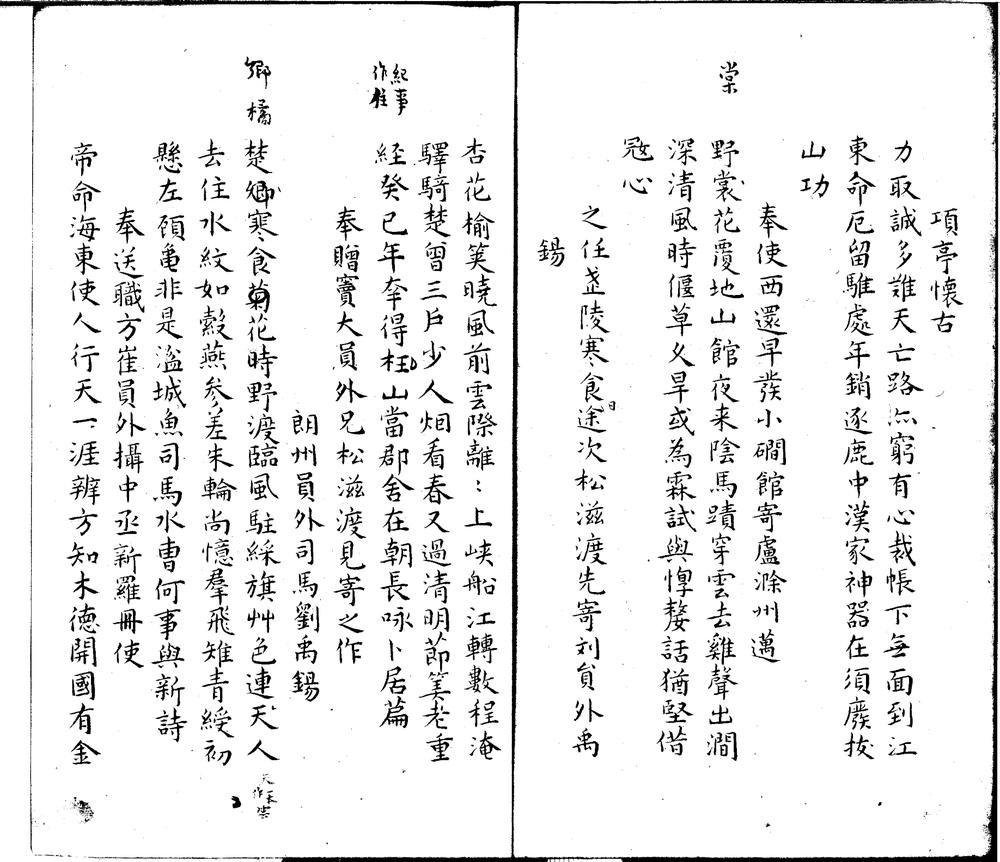 項亭懷古
力取誠多難天亡路亦窮有心裁帳下無面到江
東命厄留騅處年銷逐鹿中漢家神器在須廢拔
山功
奉使西還早發小磵館寄盧滁州邁
棠
野裳花覆地山館夜來陰馬蹟穿雲去雞聲出澗
深清風時偃草久旱或為霖試與惸嫠話猶堅借
冦心
之任盩陵寒食日途次松滋渡先寄刘員外禹
錫
杏花榆筴曉風前雲際離〻上峽船江轉數程淹
驛騎楚曾三戶少人烟看春又過清明節筭老重
紀事
作柱
經癸巳年幸得枉山當郡舍在朝長咏卜居篇
奉贈竇大員外兄松滋渡見寄之作
朗州員外司馬劉禹錫
鄉 橘
楚鄉寒食菊花時野渡臨風駐綵旗艸色連天人
去住水紋如縠燕參差朱輪尚憶羣飛雉青綬初
懸左顧龜非是湓城魚司馬水曹何事與新詩
奉送職方崔員外攝中丞新羅冊使
帝命海東使人行天一涯辨方知木德開國有金